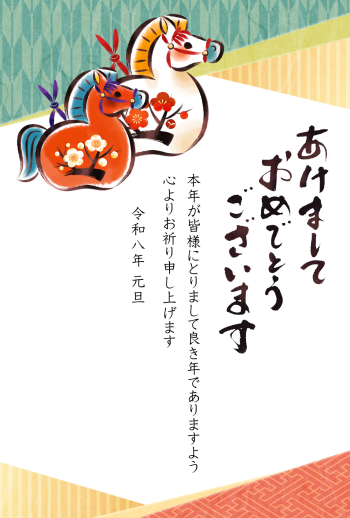 あけまして
おめでとう
ございます
本年が皆様にとりまして良き年でありますよう
心よりお祈り申し上げます
令和八年 元旦